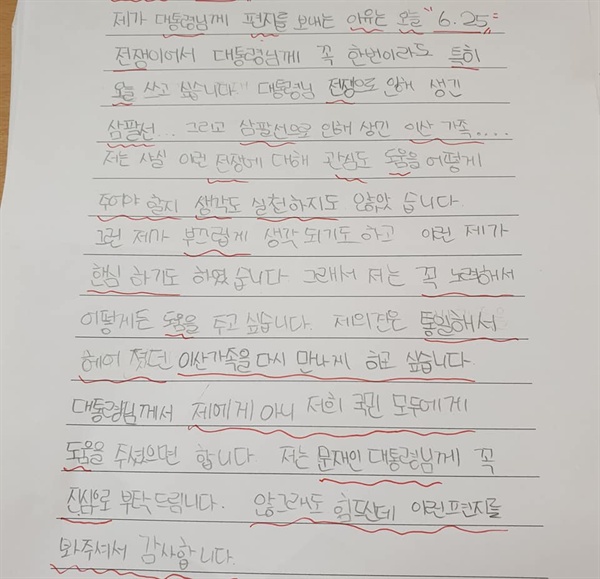 제가 대통령님께 편지를 보내는 이유는 오늘 "6.25"
전쟁이어서 대통령님께 꼭 한번이라도 특히
오늘 쓰고 싶습니다" 대통령님 전쟁으로 인해 생긴
삼팔선... 그리고 삼팔선으로 인해 생긴 이산 가족....
저는 사실 이런 전쟁에 대해 관심도 도움을 어떻게
주어야 할지 생각도 실천하지도 않았 습니다.
그런 제가 부끄럽게 생각 되기도 하고 이런 제가
한심 하기도 하였 습니다. 그래서 저는 꼭 노력해서
어떻게든 도움을 주고 싶습니다. 제의견은 통일해서
헤어 졌던 이산가족을 다시 만나게 하고 싶습니다.
대통령님께서 제에게 아니 저희 국민 모두에게
도움을 주셨으면 합니다. 저는 문재인 대통령님께 꼭
진심으로 부탁 드립니다. 않그래도 힘드신데 이런편지를
봐주셔서 감사합니다.